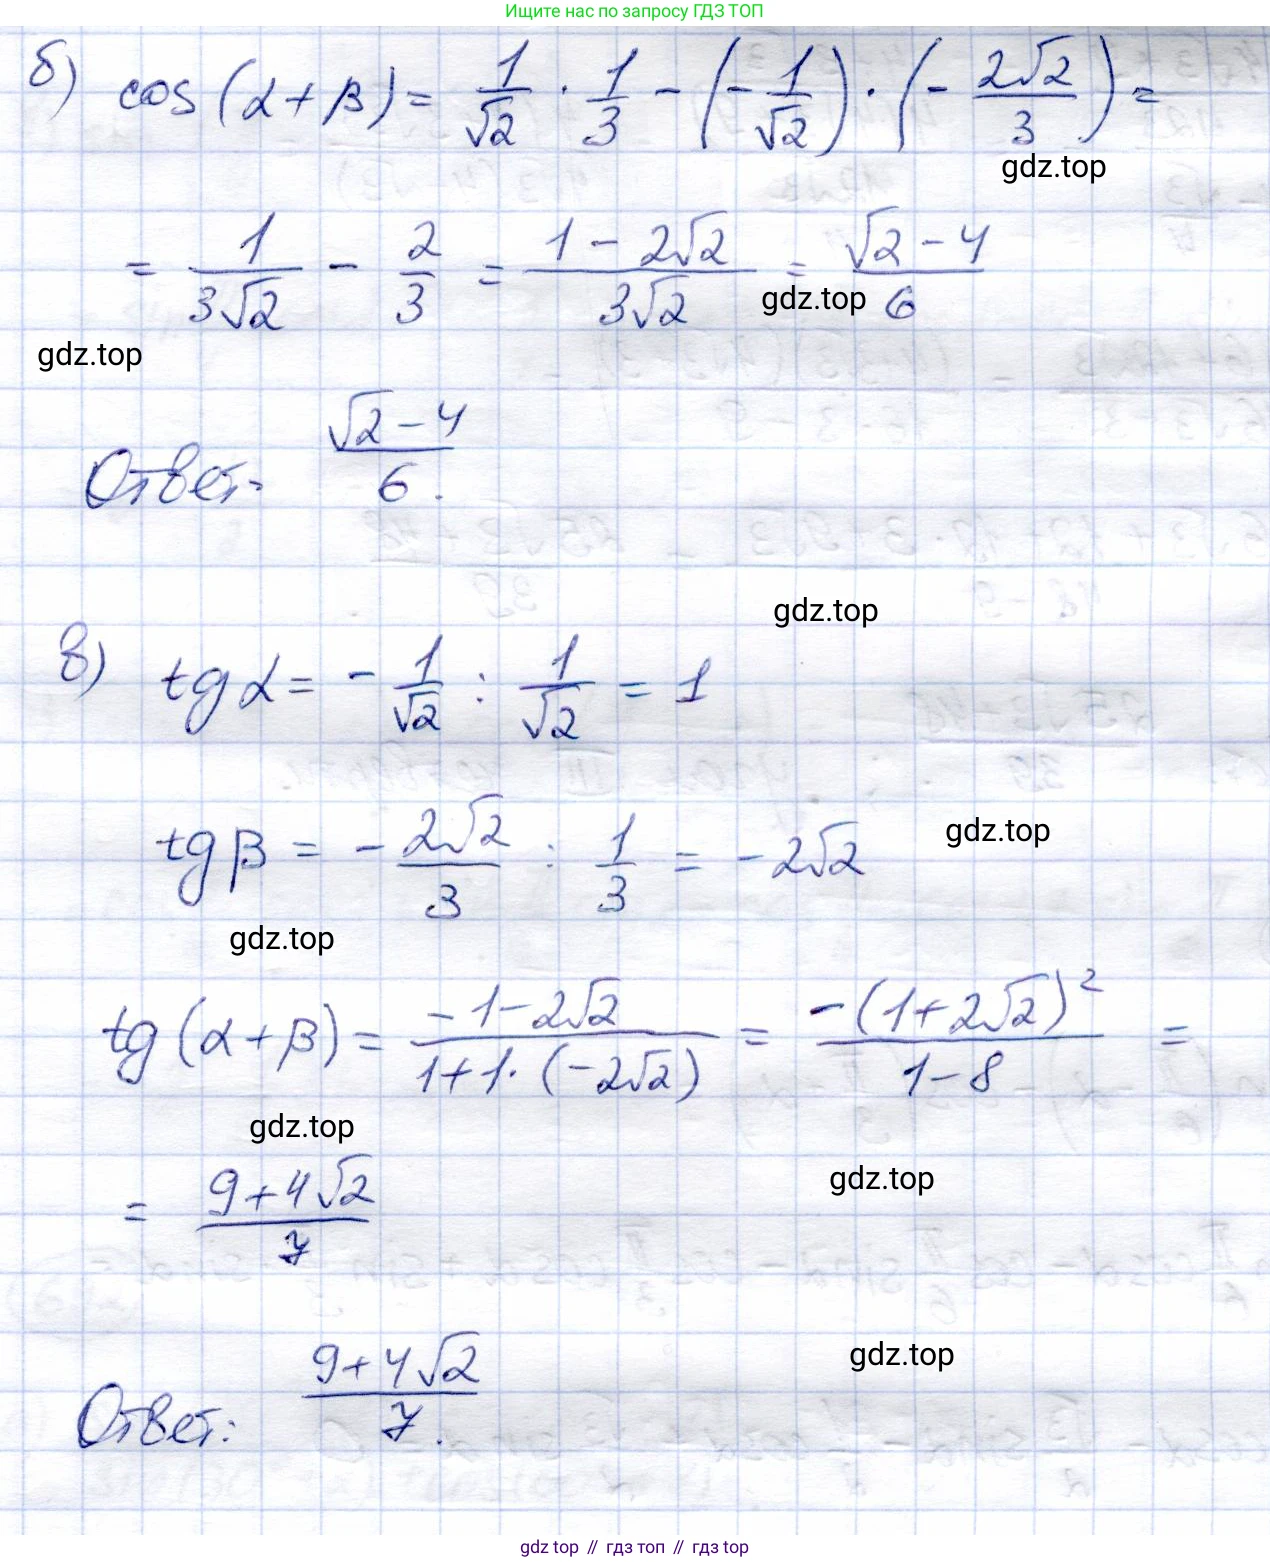 Ищите нас по запросу ГДЗ ТОП
б) cos(α+β) = 1/√2 · 1/3 - (-1/√2) · (-2√2/3) =
gdz.top
= 1/(3√2) - 2/3 = (1-2√2)/(3√2) = (√2-4)/6
gdz.top
gdz.top
Ответ: (√2-4)/6.
gdz.top
в) tg α = -1/√2 : 1/√2 = 1
tg β = -2√2/3 : 1/3 = -2√2
gdz.top
gdz.top
tg(α+β) = (-1-2√2)/(1+1·(-2√2)) = -(1+2√2)²/(1-8) =
gdz.top
gdz.top
= (9+4√2)/7
gdz.top
Ответ: (9+4√2)/7.
gdz top // гдз топ // гдз top